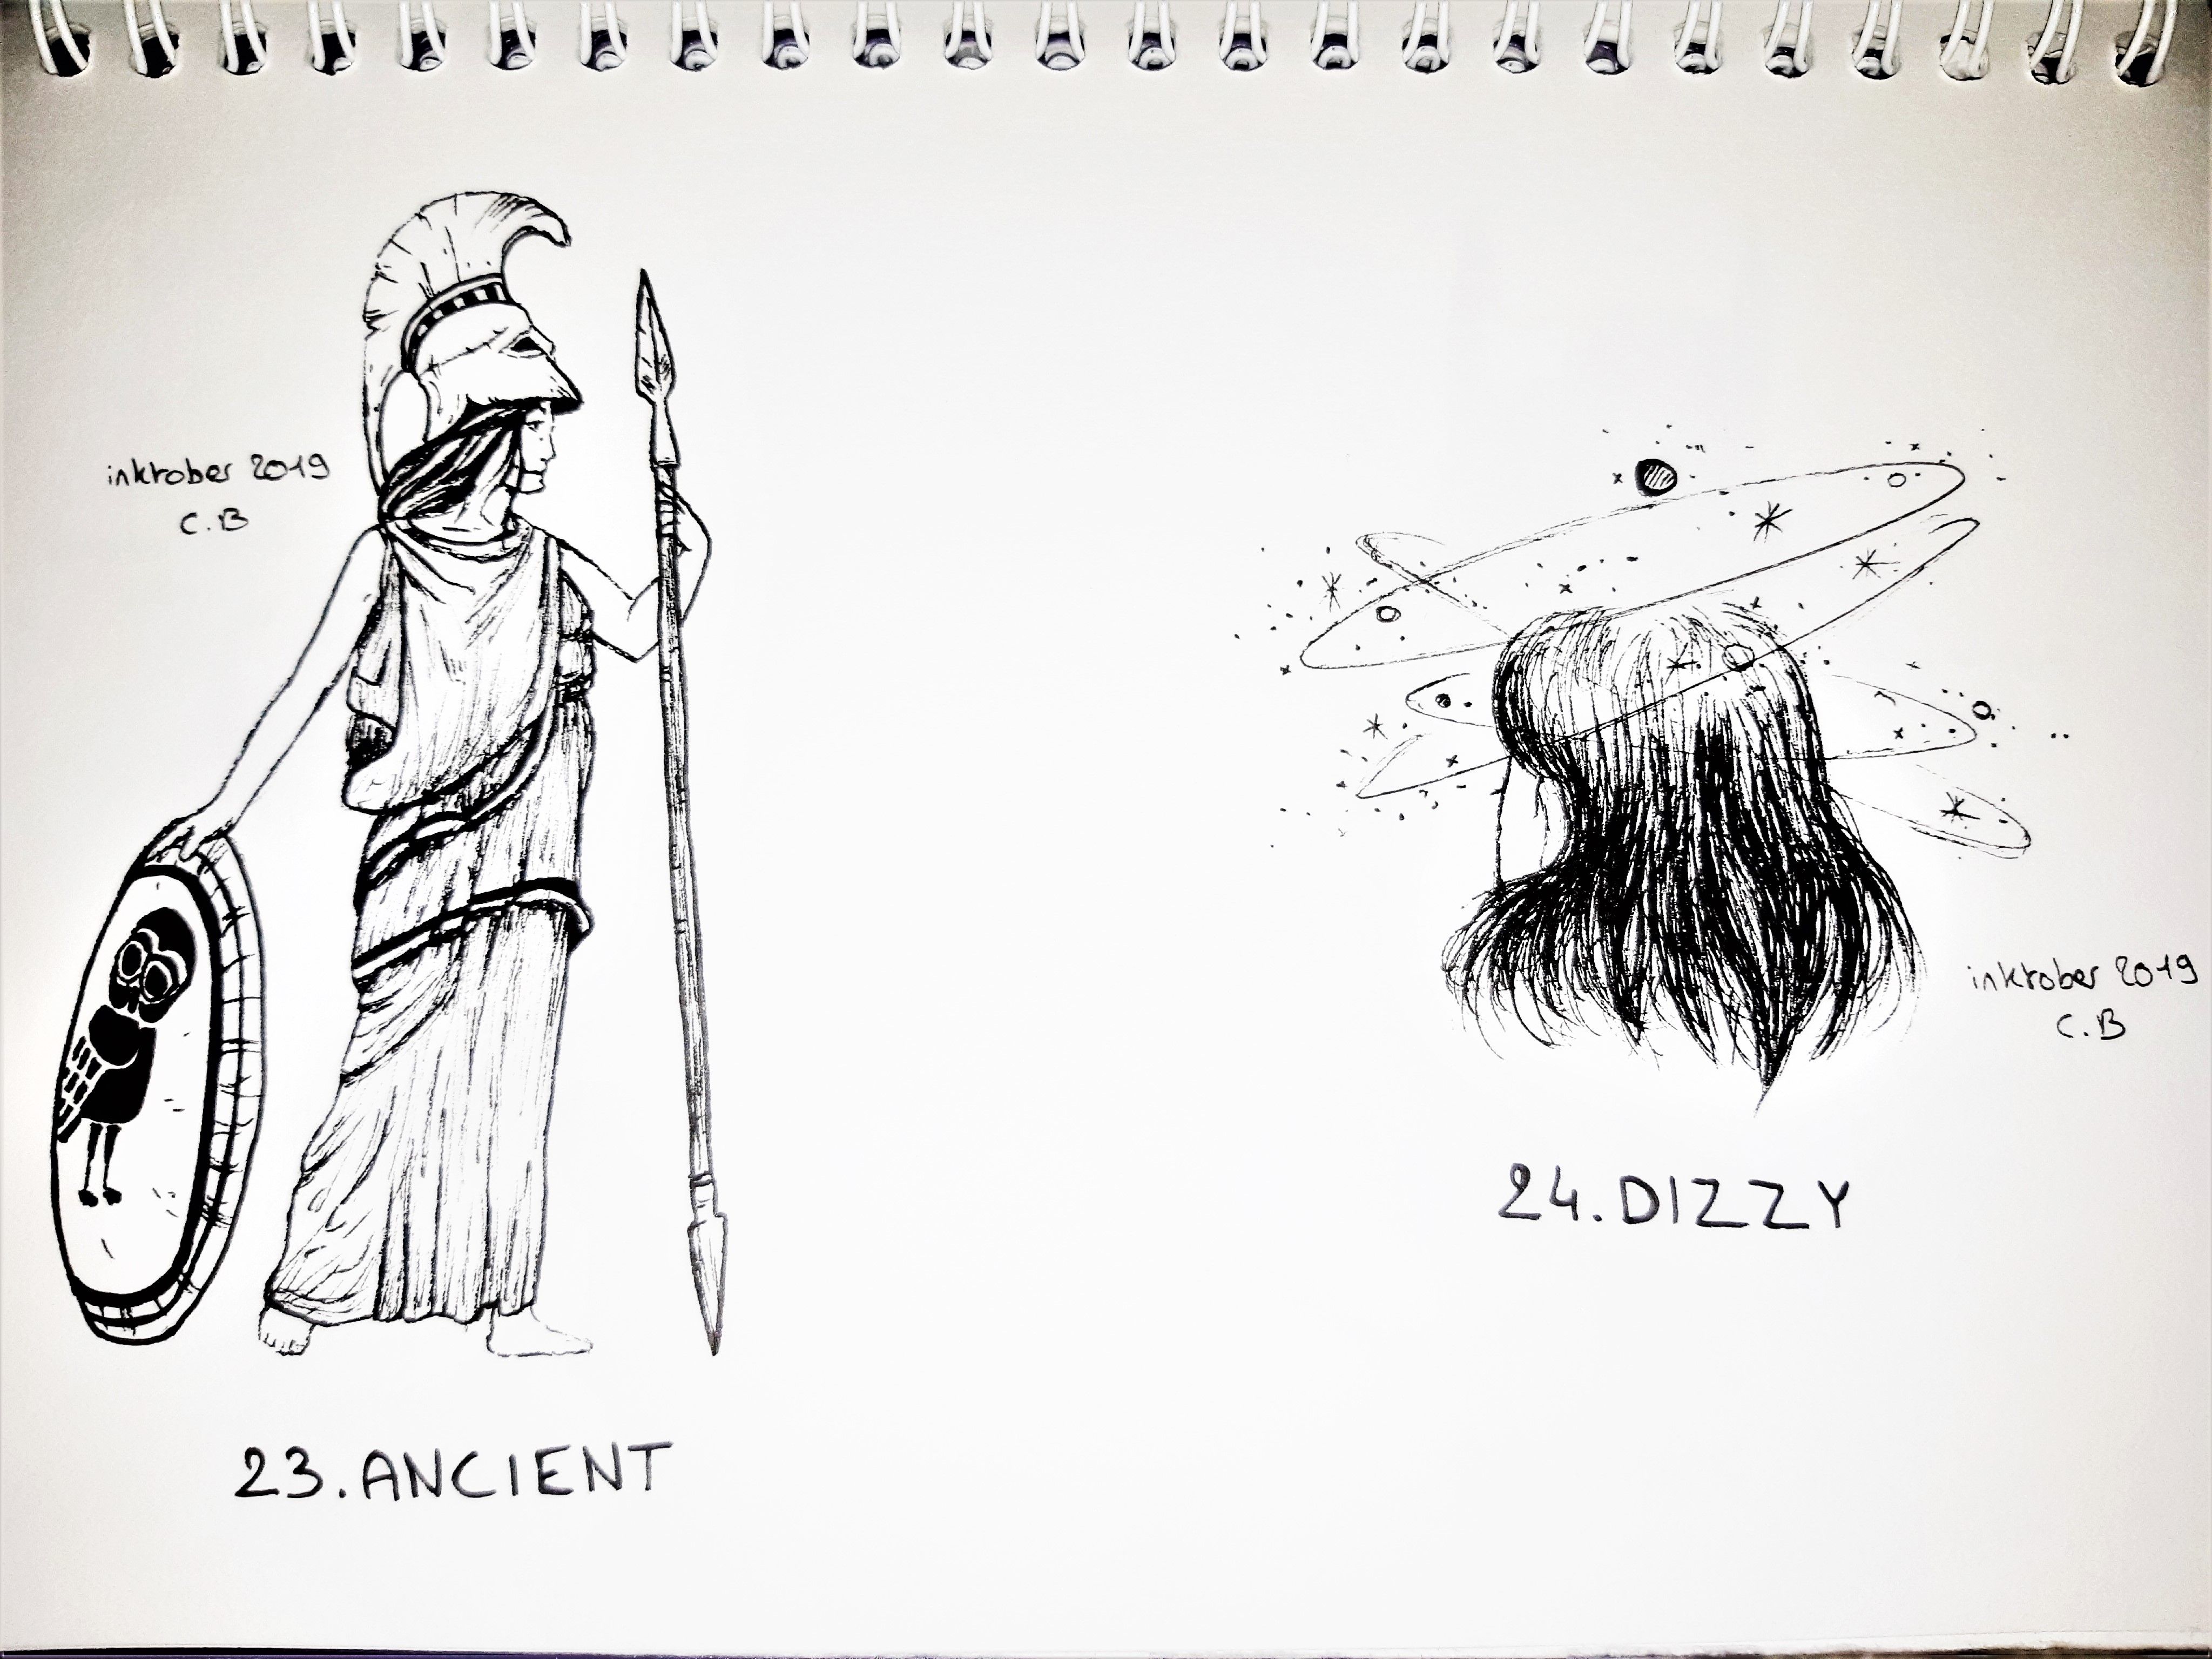 inktober 2019
C.B
23.ANCIENT
inktober 2019
C.B
24.DIZZY